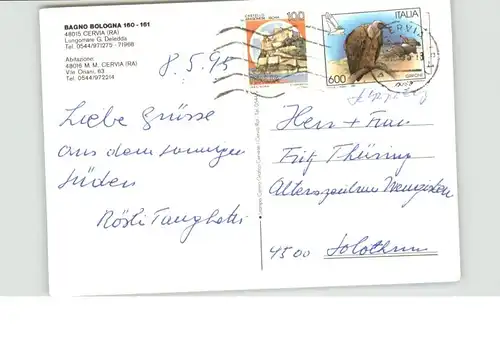 BAGNO BOLOGNA 160 - 161
48015 CERVIA (RA)
Lungomare G. Deledda
Tel. 0544/971275 - 71968
Abitazione:
48016 M. M. CERVIA (RA)
Via Oriani, 63
Tel. 0544/972214
8.5.95
Liebe Grüsse
aus dem sonnigen
Süden
Rösli
CASTELLO
100
ITALIA
600
GRIFONE
CERVIA
Herr + Frau
Fritz Thüring
Alterszentrum
4500 Solothurn